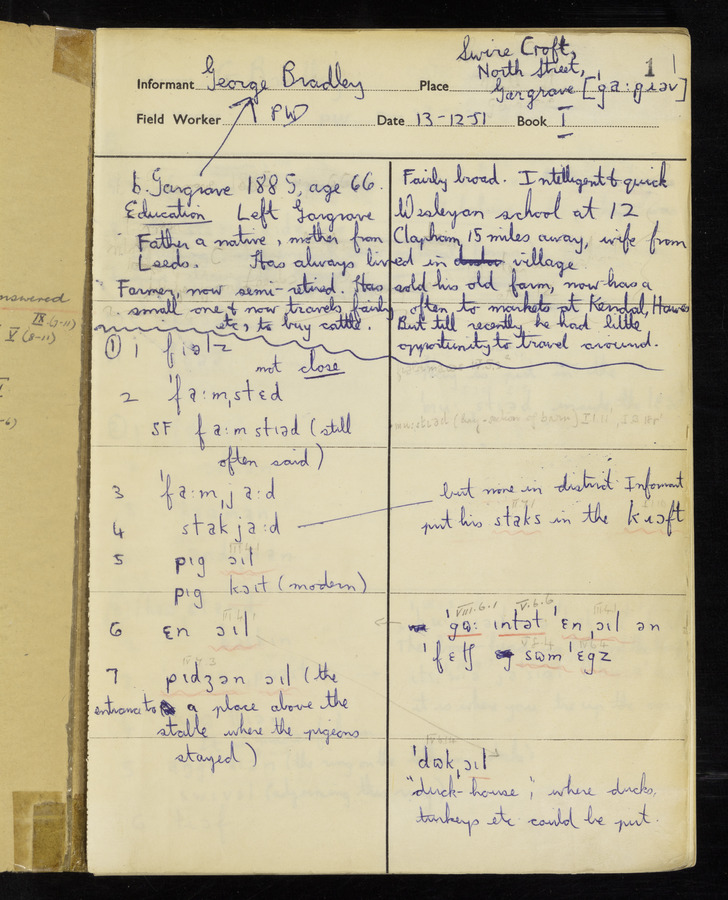 Swire Croft,
North Street,
1
Informant George Bradley Place Gargrave ['ga:gɹəv]
Field Worker PW Date 13-12-51 Book I
b. Gargrave 1885, age 66. Fairly broad. Intelligent & quick
Education Left Gargrave Wesleyan school at 12
Father a native, mother from Clapham, 15 miles away, wife from
Leeds. Has always lived in village.
Farmer, now semi-retired. Has sold his old farm, now has a
small one & now travels fairly often to markets at Kendal, Hawes
etc, to buy cattle. But till recently he had little
opportunity to travel around.
nswered
IX (3-11)
V (8-11)
① 1 fiəlz
not close
2 'fa:mˌstɛd
SF fa:mstɪəd (still
often said)
3 'fa:mˌja:d
4 stakja:d
but none in district Informant
put his staks in the kɹɔft
5 pɪg ɔɪl
pɪg kɔɪt (modern)
6 ɛn ɔɪl
VIII.6.1 V.6.6
'gɷ: ɪntət 'ɛnˌɔɪl ən
'fɛtʃ sɷm 'ɛgz
7 pɪdʒən ɔɪl (the
entrance to a place above the
stable where the pigeons
stayed)
'dɷkˌɔɪl
"duck-house"; where ducks,
turkeys etc could be put.